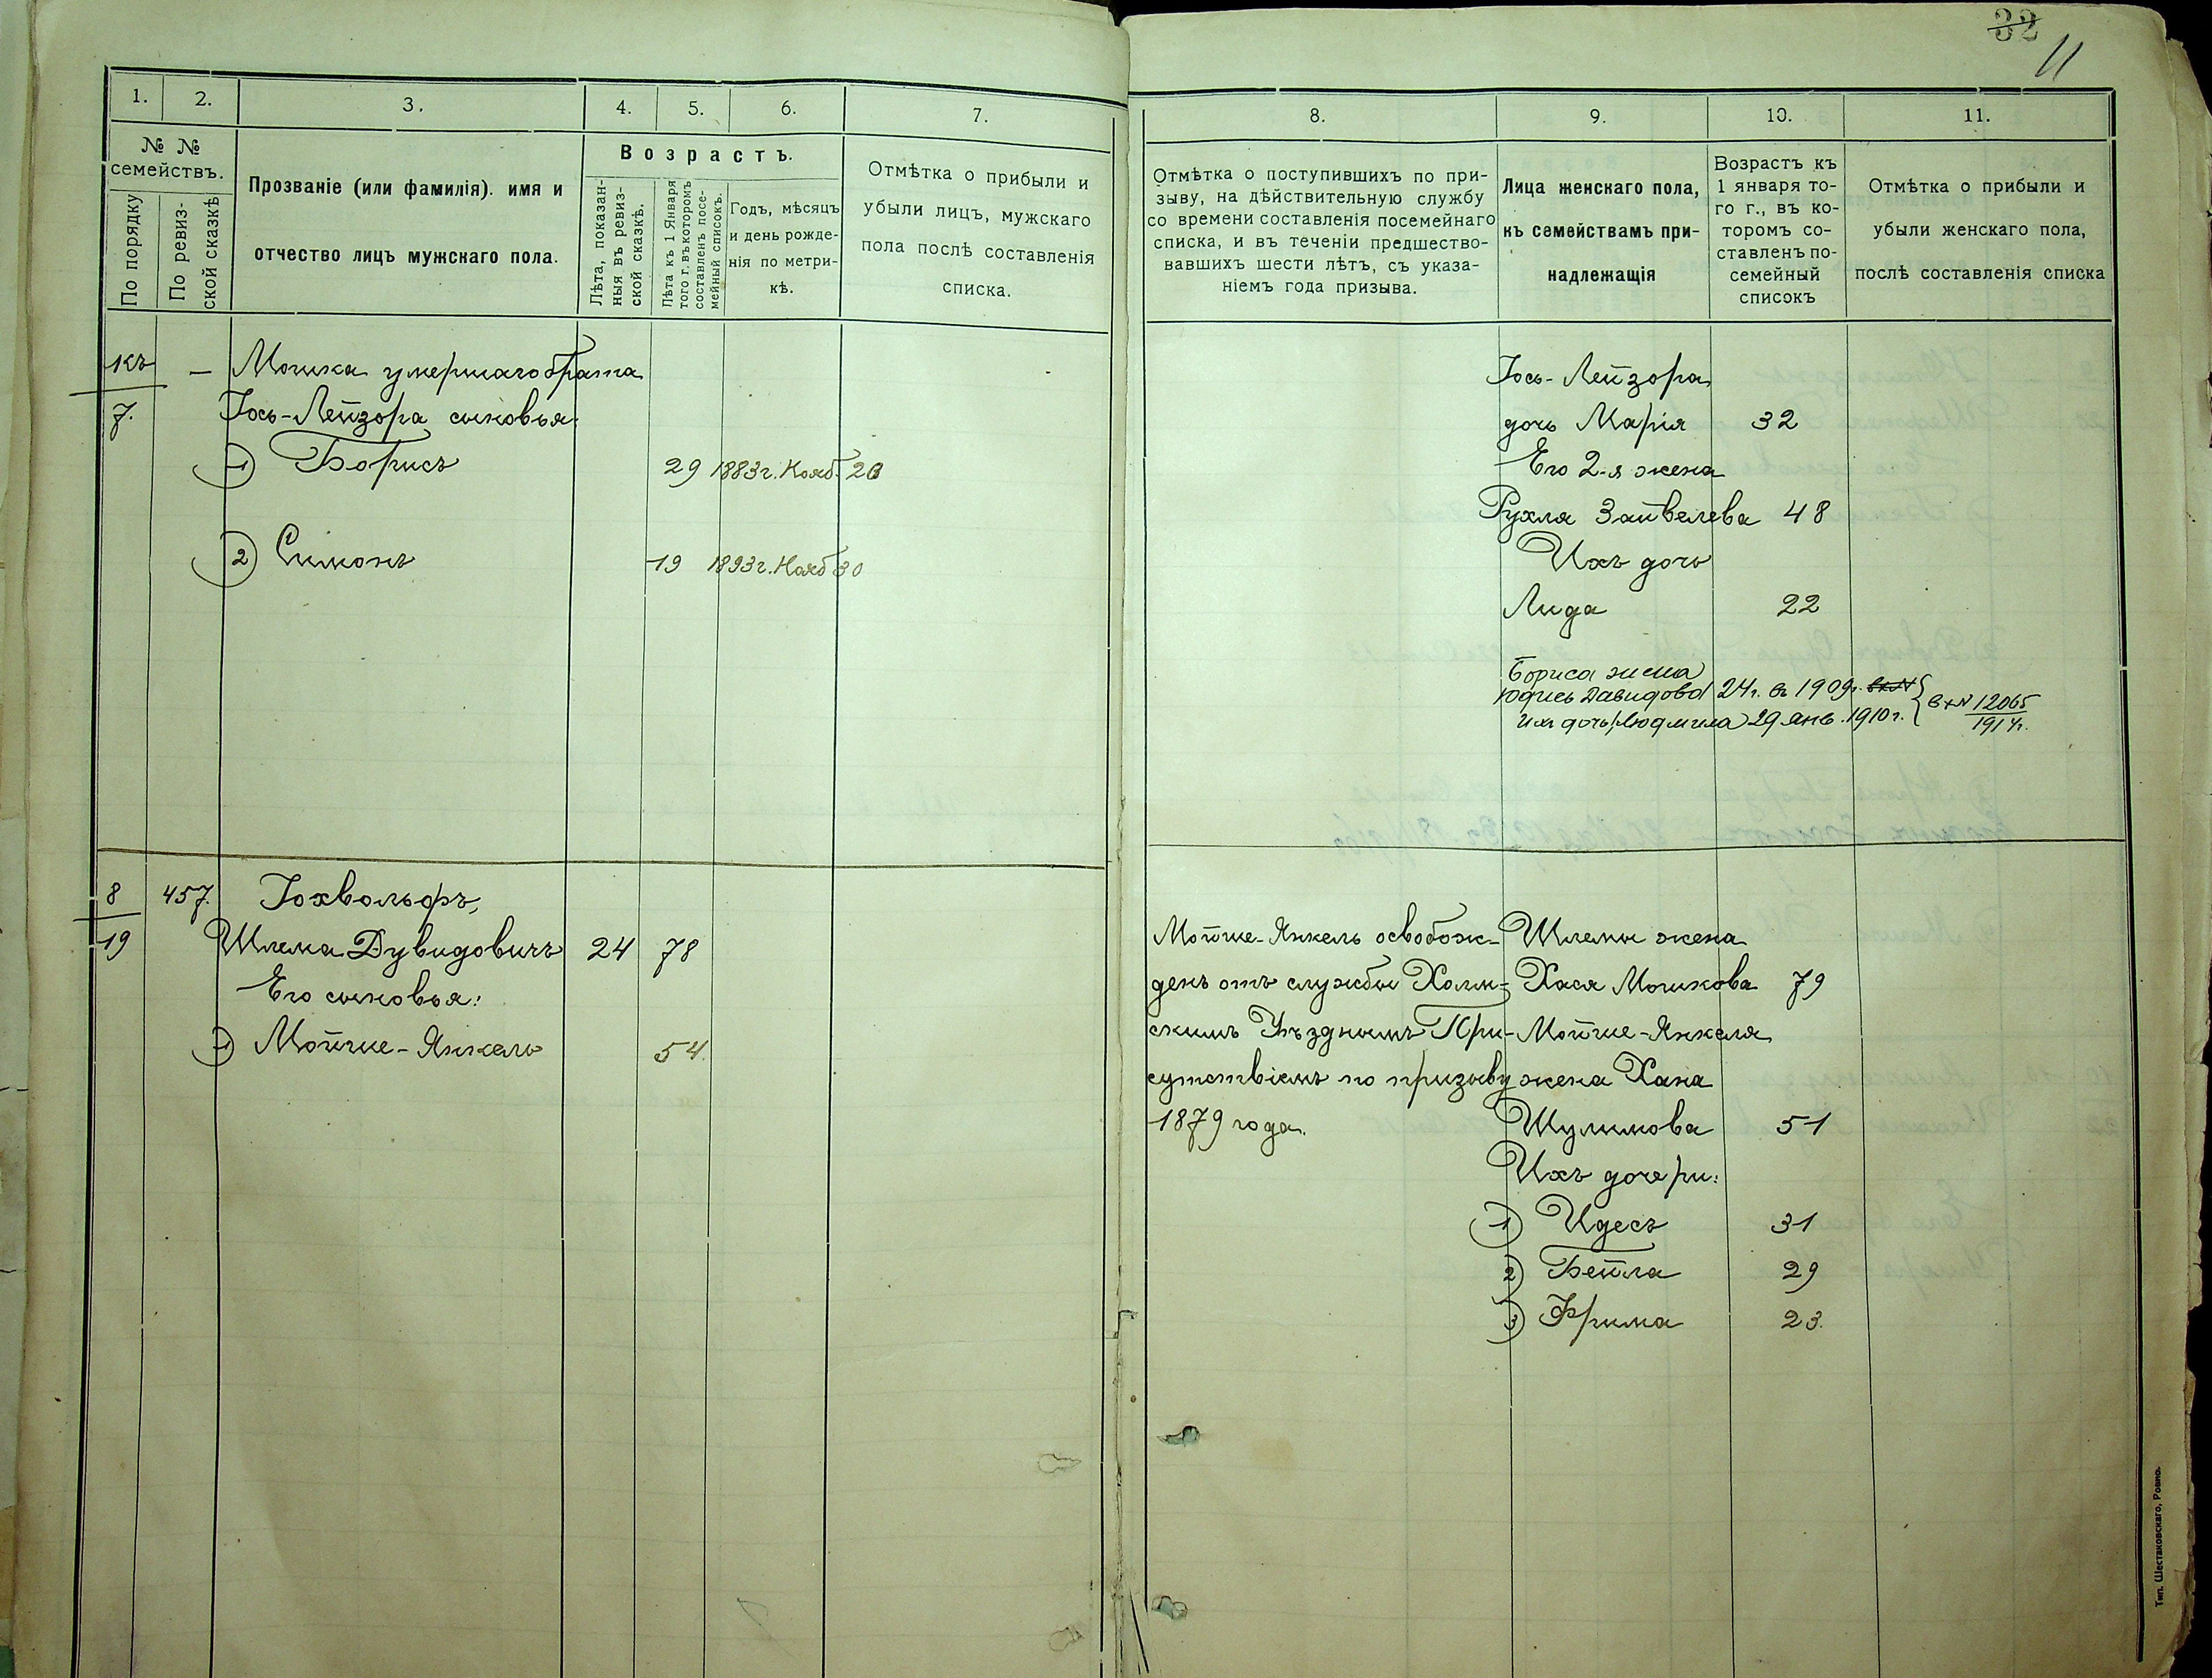 32
11
1.
2.
3.
4.
5.
6.
7.
№ №
семействъ.
По порядку
По ревиз-
ской сказкѣ
Прозваніе (или фамилія). имя и
отчество лицъ мужскаго пола.
Возрастъ.
Лѣта, показан-
ныя въ ревиз-
ской сказкѣ.
Лѣта къ 1 Января
того г. въ которомъ
составленъ посе-
мейный списокъ.
Годъ, мѣсяцъ
и день рожде-
нія по метри-
кѣ.
Отмѣтка о прибыли и
убыли лицъ, мужскаго
пола послѣ составленія
списка.
къ
7.
— Мошка умершаго брата
Іось-Лейзора сыновья:
1) Борисъ 29 1883 г. Нояб. 20
2) Симонъ 19 1893 г. Нояб 30
8
19
457. Гохвольфъ,
Шлема Дувидовичъ 24 78
Его сыновья:
1) Мойше-Янкель 54.
8.
9.
10.
11.
Отмѣтка о поступившихъ по при-
зыву, на дѣйствительную службу
со времени составленія посемейнаго
списка, и въ теченіи предшество-
вавшихъ шести лѣтъ, съ указа-
ніемъ года призыва.
Лица женскаго пола,
къ семействамъ при-
надлежащія
Возрастъ къ
1 января то-
го г., въ ко-
торомъ со-
ставленъ по-
семейный
списокъ
Отмѣтка о прибыли и
убыли женскаго пола,
послѣ составленія списка
Іось-Лейзора
дочь Марія 32
Его 2-я жена
Рухля Зайвелева 48
Ихъ дочь
Лида 22
Бориса жена
Юдись Давидова 24 г. въ 1909 г. вх. №
Ихъ дочь Людмила 29 янв. 1910 г. } Вх № 12065
1914 г.
Мойше-Янкель освобож-
денъ отъ службы Холм-
скимъ Уѣзднымъ При-
сутствіемъ по призыву
1879 года.
Шлемы жена
Хася Мошкова 79
Мойше-Янкеля
жена Хана
Шулимова 51
Ихъ дочери:
1) Идесъ 31
2) Бейла 29
3) Фрима 23.
Тип. Шестаковскаго, Ровно.